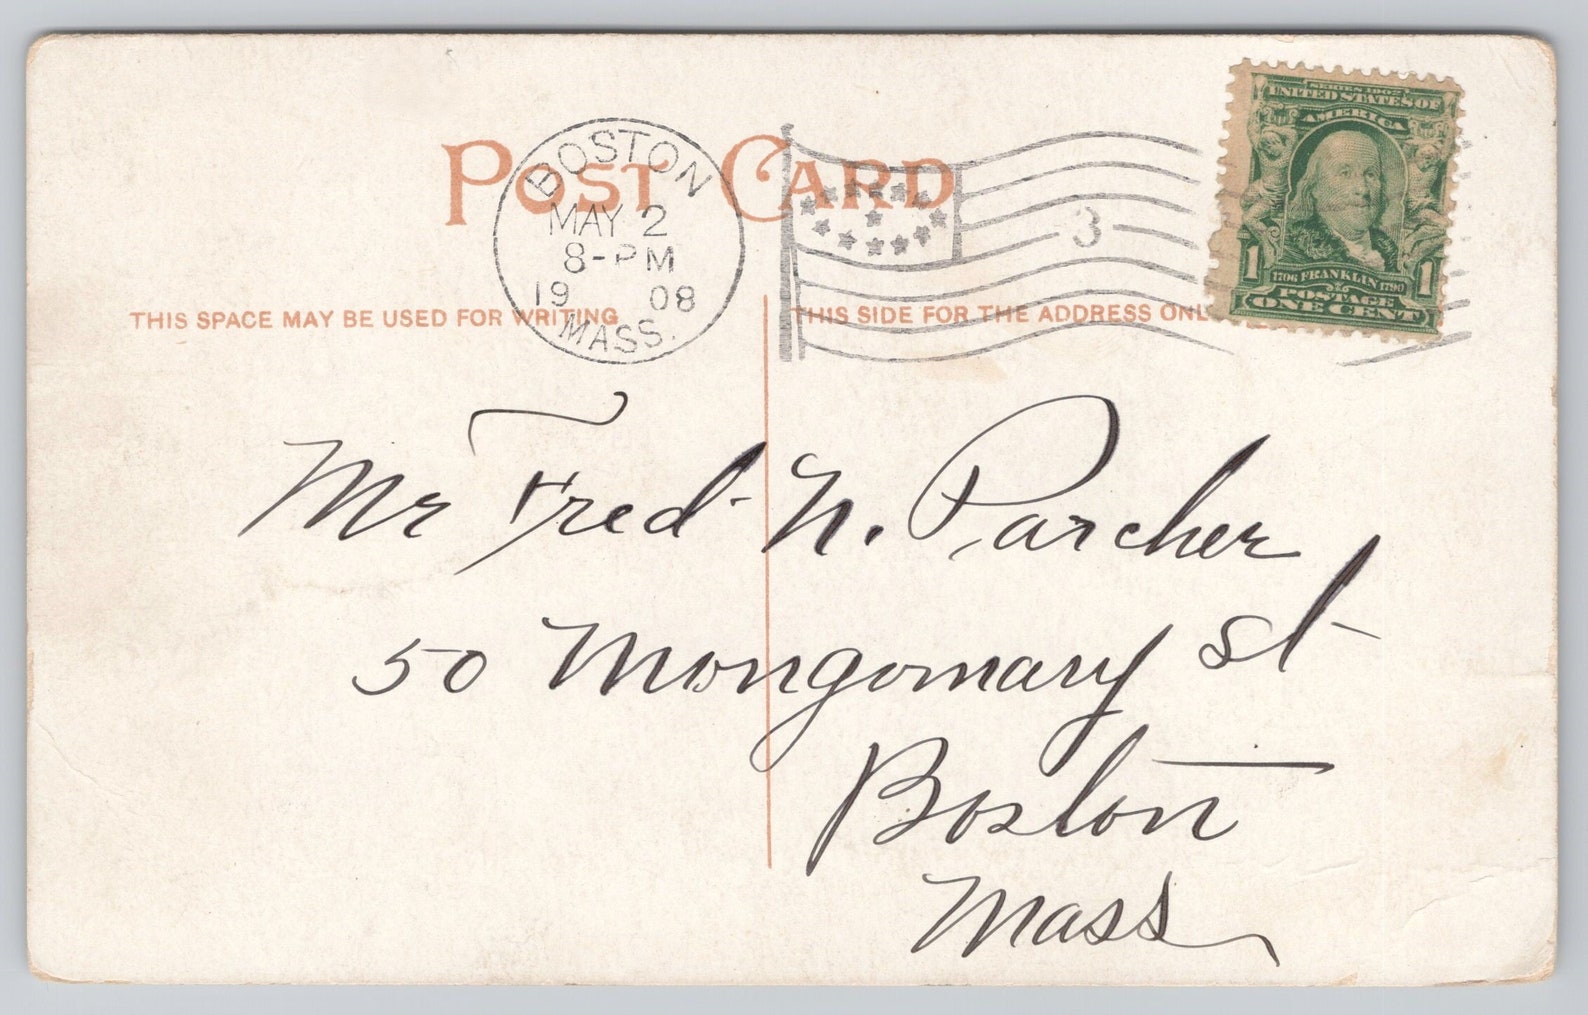 POST CARD
BOSTON
MAY 2
8-PM
19 08
MASS.
3
SERIES 1902
UNITED STATES OF
AMERICA
1 1706 FRANKLIN 1790 1
POSTAGE
ONE CENT
THIS SPACE MAY BE USED FOR WRITING
THIS SIDE FOR THE ADDRESS ONL
Mr Fred N. Parcher
50 Mongomary st
Boston
Mass